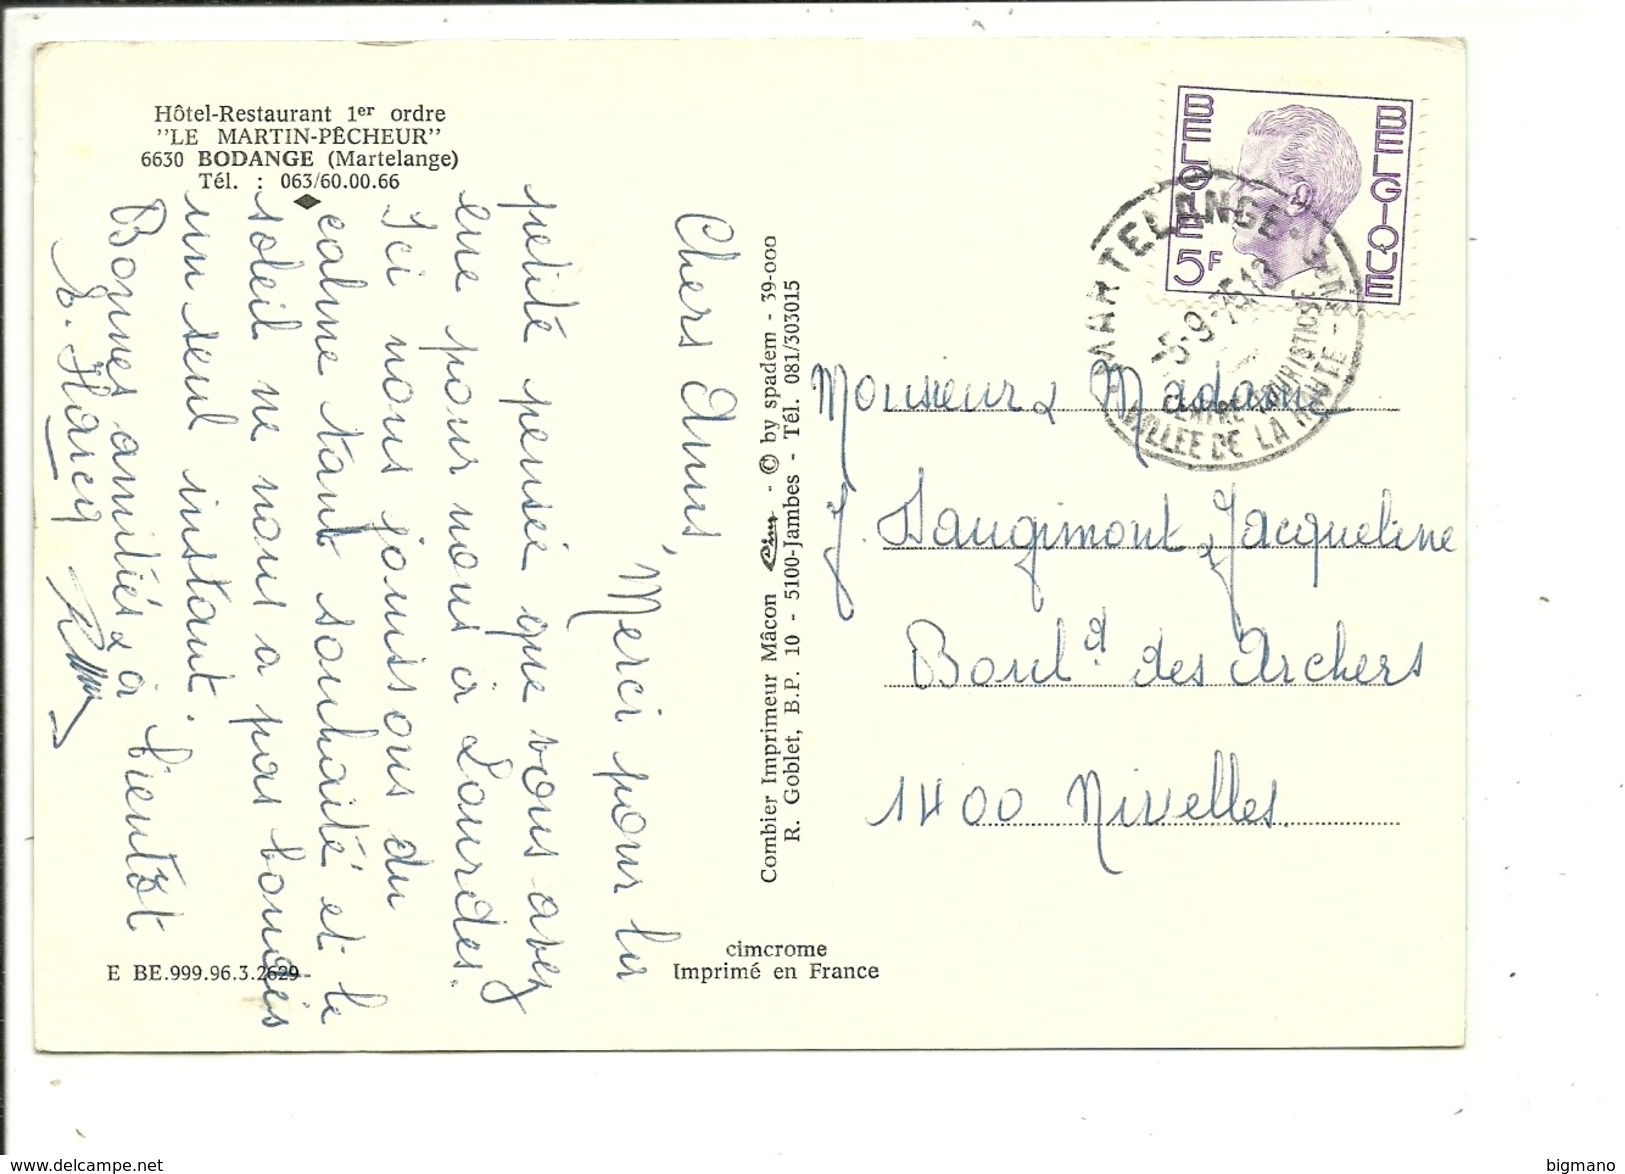 Hôtel-Restaurant 1er ordre
"LE MARTIN-PÊCHEUR"
6630 BODANGE (Martelange)
Tél. : 063/60.00.66
Chers Amis,
Merci pour la
petite pensée que vous avez
eue pour nous à Lourdes.
Ici nous jouissons du
calme tant souhaité et le
soleil ne nous a pas boudés
un seul instant.
Bonnes amitiés & à bientôt
Combier Imprimeur Mâcon Cim - © by spadem - 39-000
R. Goblet, B.P. 10 - 5100-Jambes - Tél. 081/303015
E BE.999.96.3.2629
cimcrome
Imprimé en France
BELGIE 5F
BELGIQUE
MARTELANGE
CENTRE TOURISTIQUE
VALLEE DE LA HAUTE - SURE
Monsieur & Madame
J. Daugimont Jacqueline
Boul.d des Archers
1400 Nivelles.
delcampe.net
bigmano